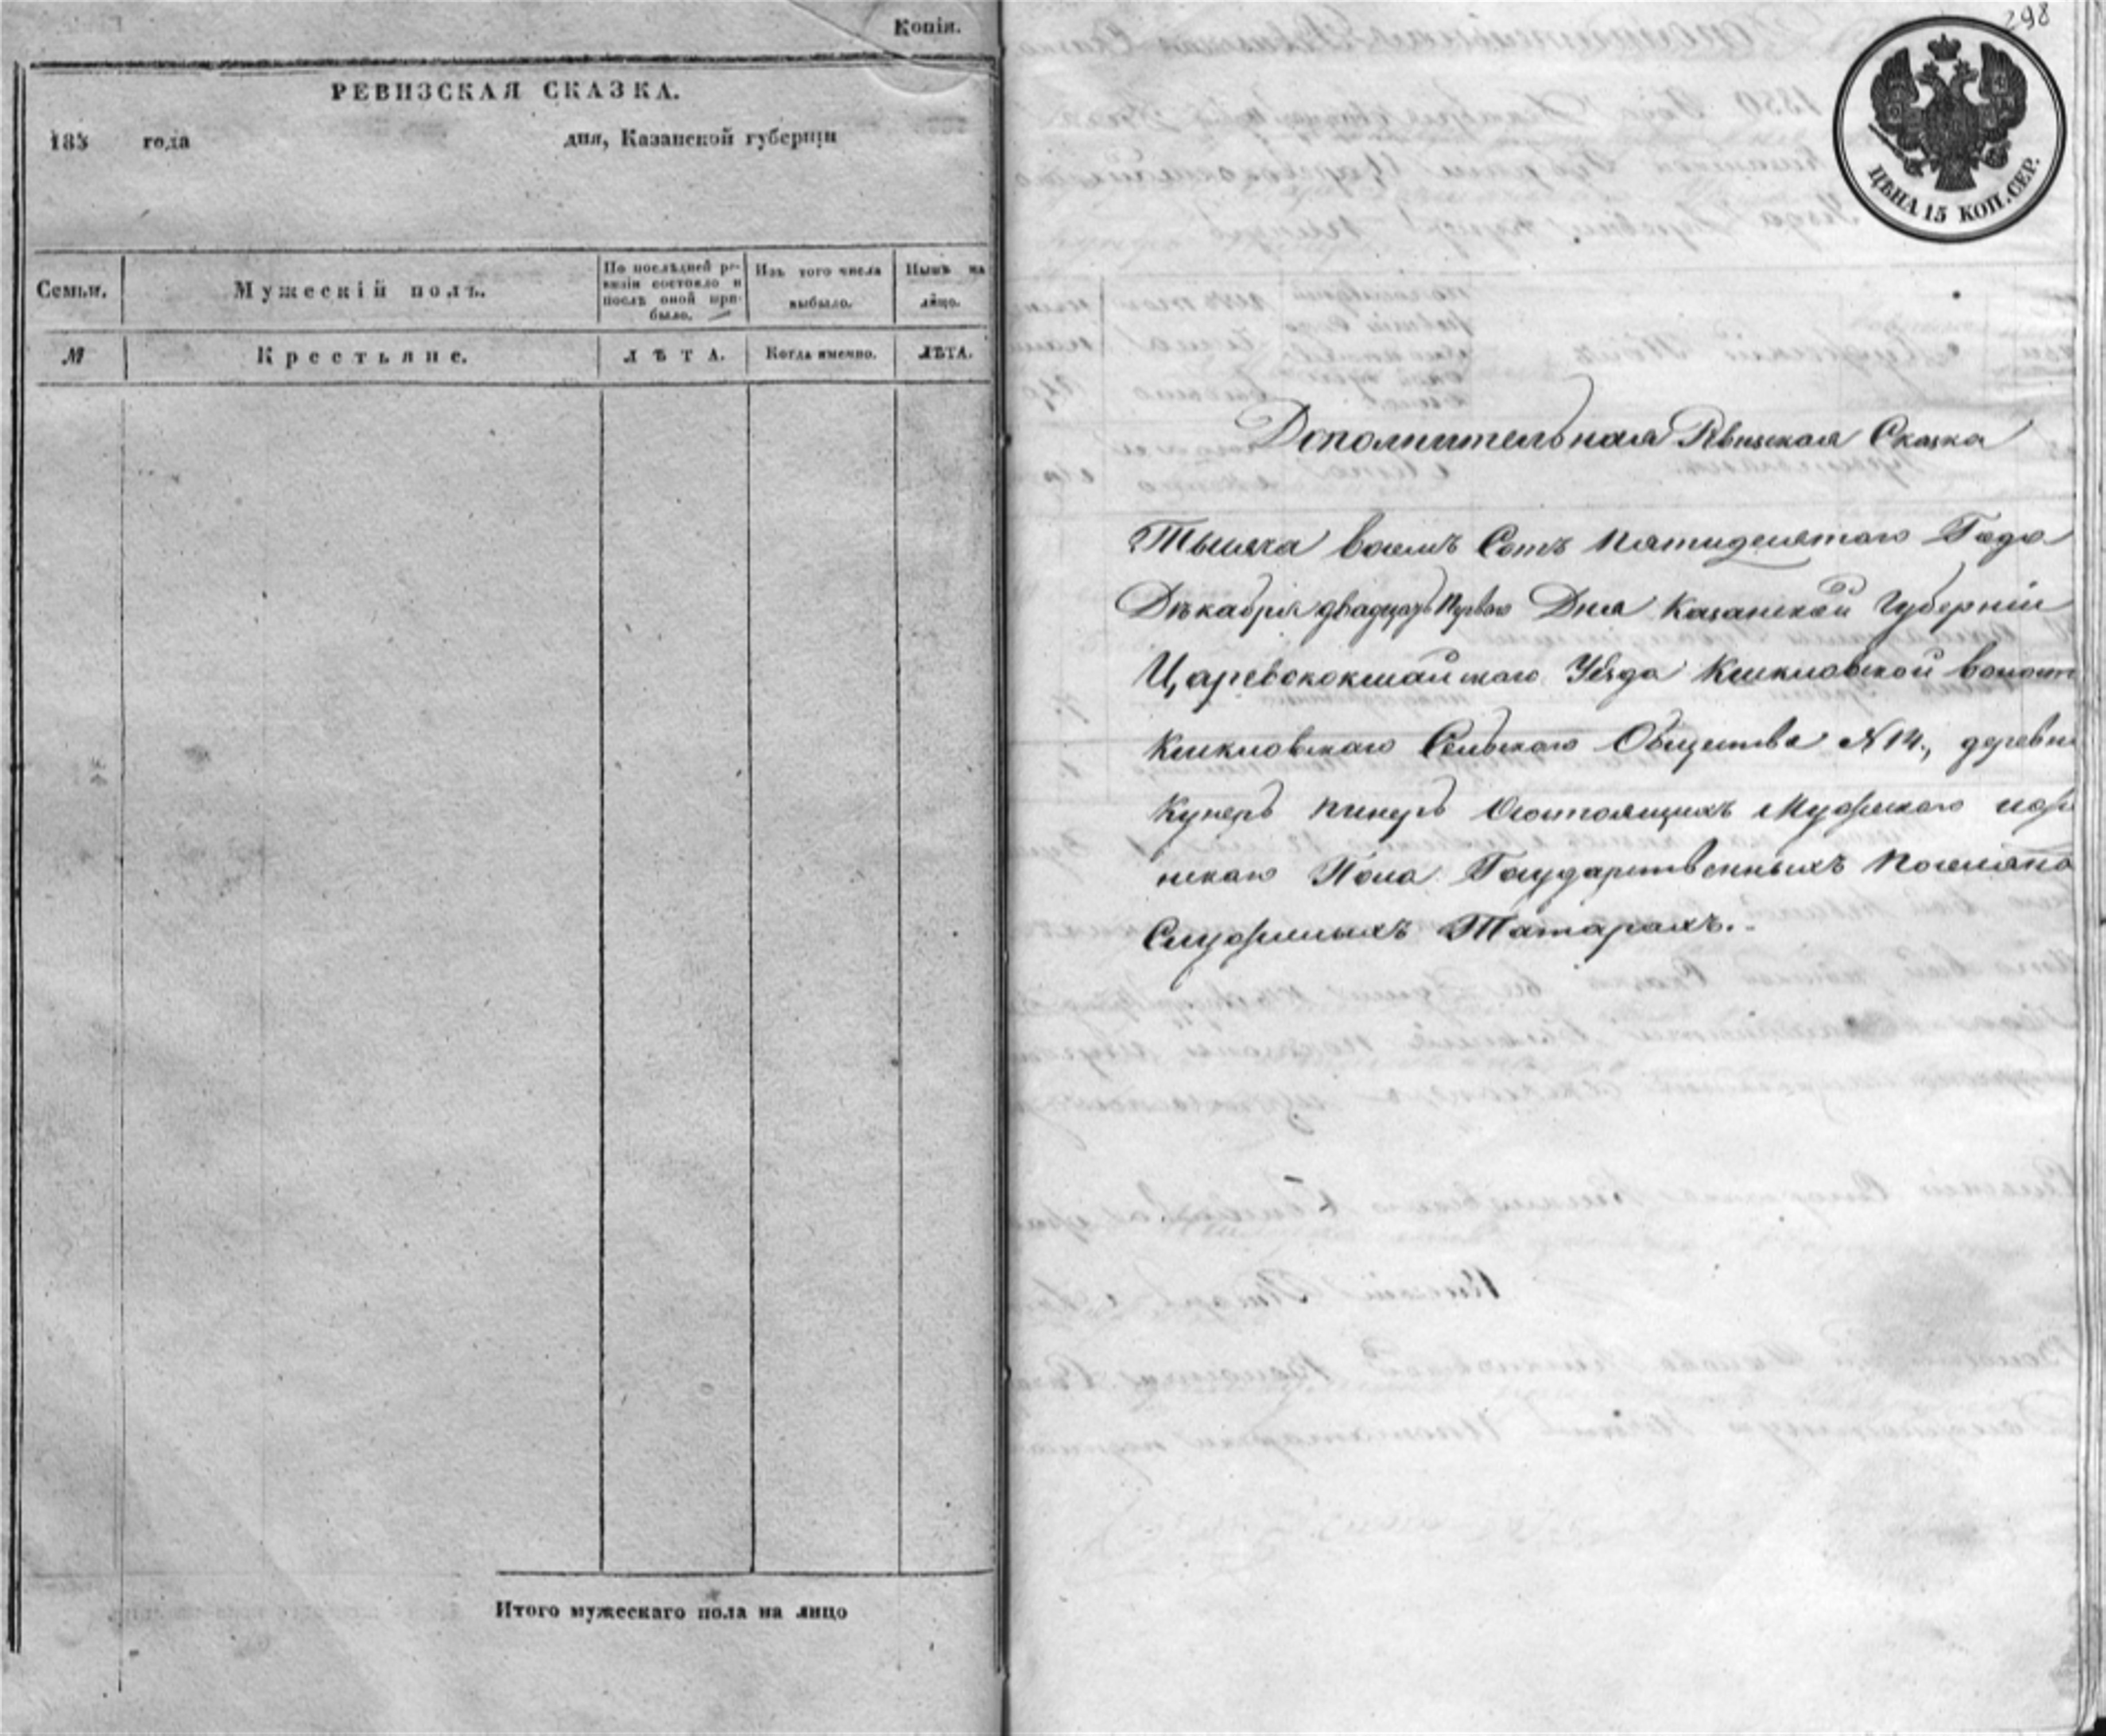 Копія.
РЕВИЗСКАЯ СКАЗКА.
185 года дня, Казанской губерніи
Семьи.
Мужескій полъ.
По послѣдней ре-
визіи состояло и
послѣ оной при-
было.
Изъ того числа
выбыло.
Нынѣ на
лицо.
№
Крестьяне.
ЛѢТА.
Когда именно.
ЛѢТА.
Итого мужескаго пола на лицо
298
ЦѢНА 15 КОП. СЕР.
Дополнительная Ревизская Сказка
Тысяча восемь Сотъ пятидесятаго Года
Декабря двадцать перваго Дня Казанской Губерніи
Царевококшайскаго Уѣзда Кшкловской волости
Кшкловскаго Сельскаго Общества №14, деревни
Кунеръ пинеръ Состоящихъ Мужскаго и же
нскаго Пола Государственныхъ поселяна
Служилыхъ Татарахъ.